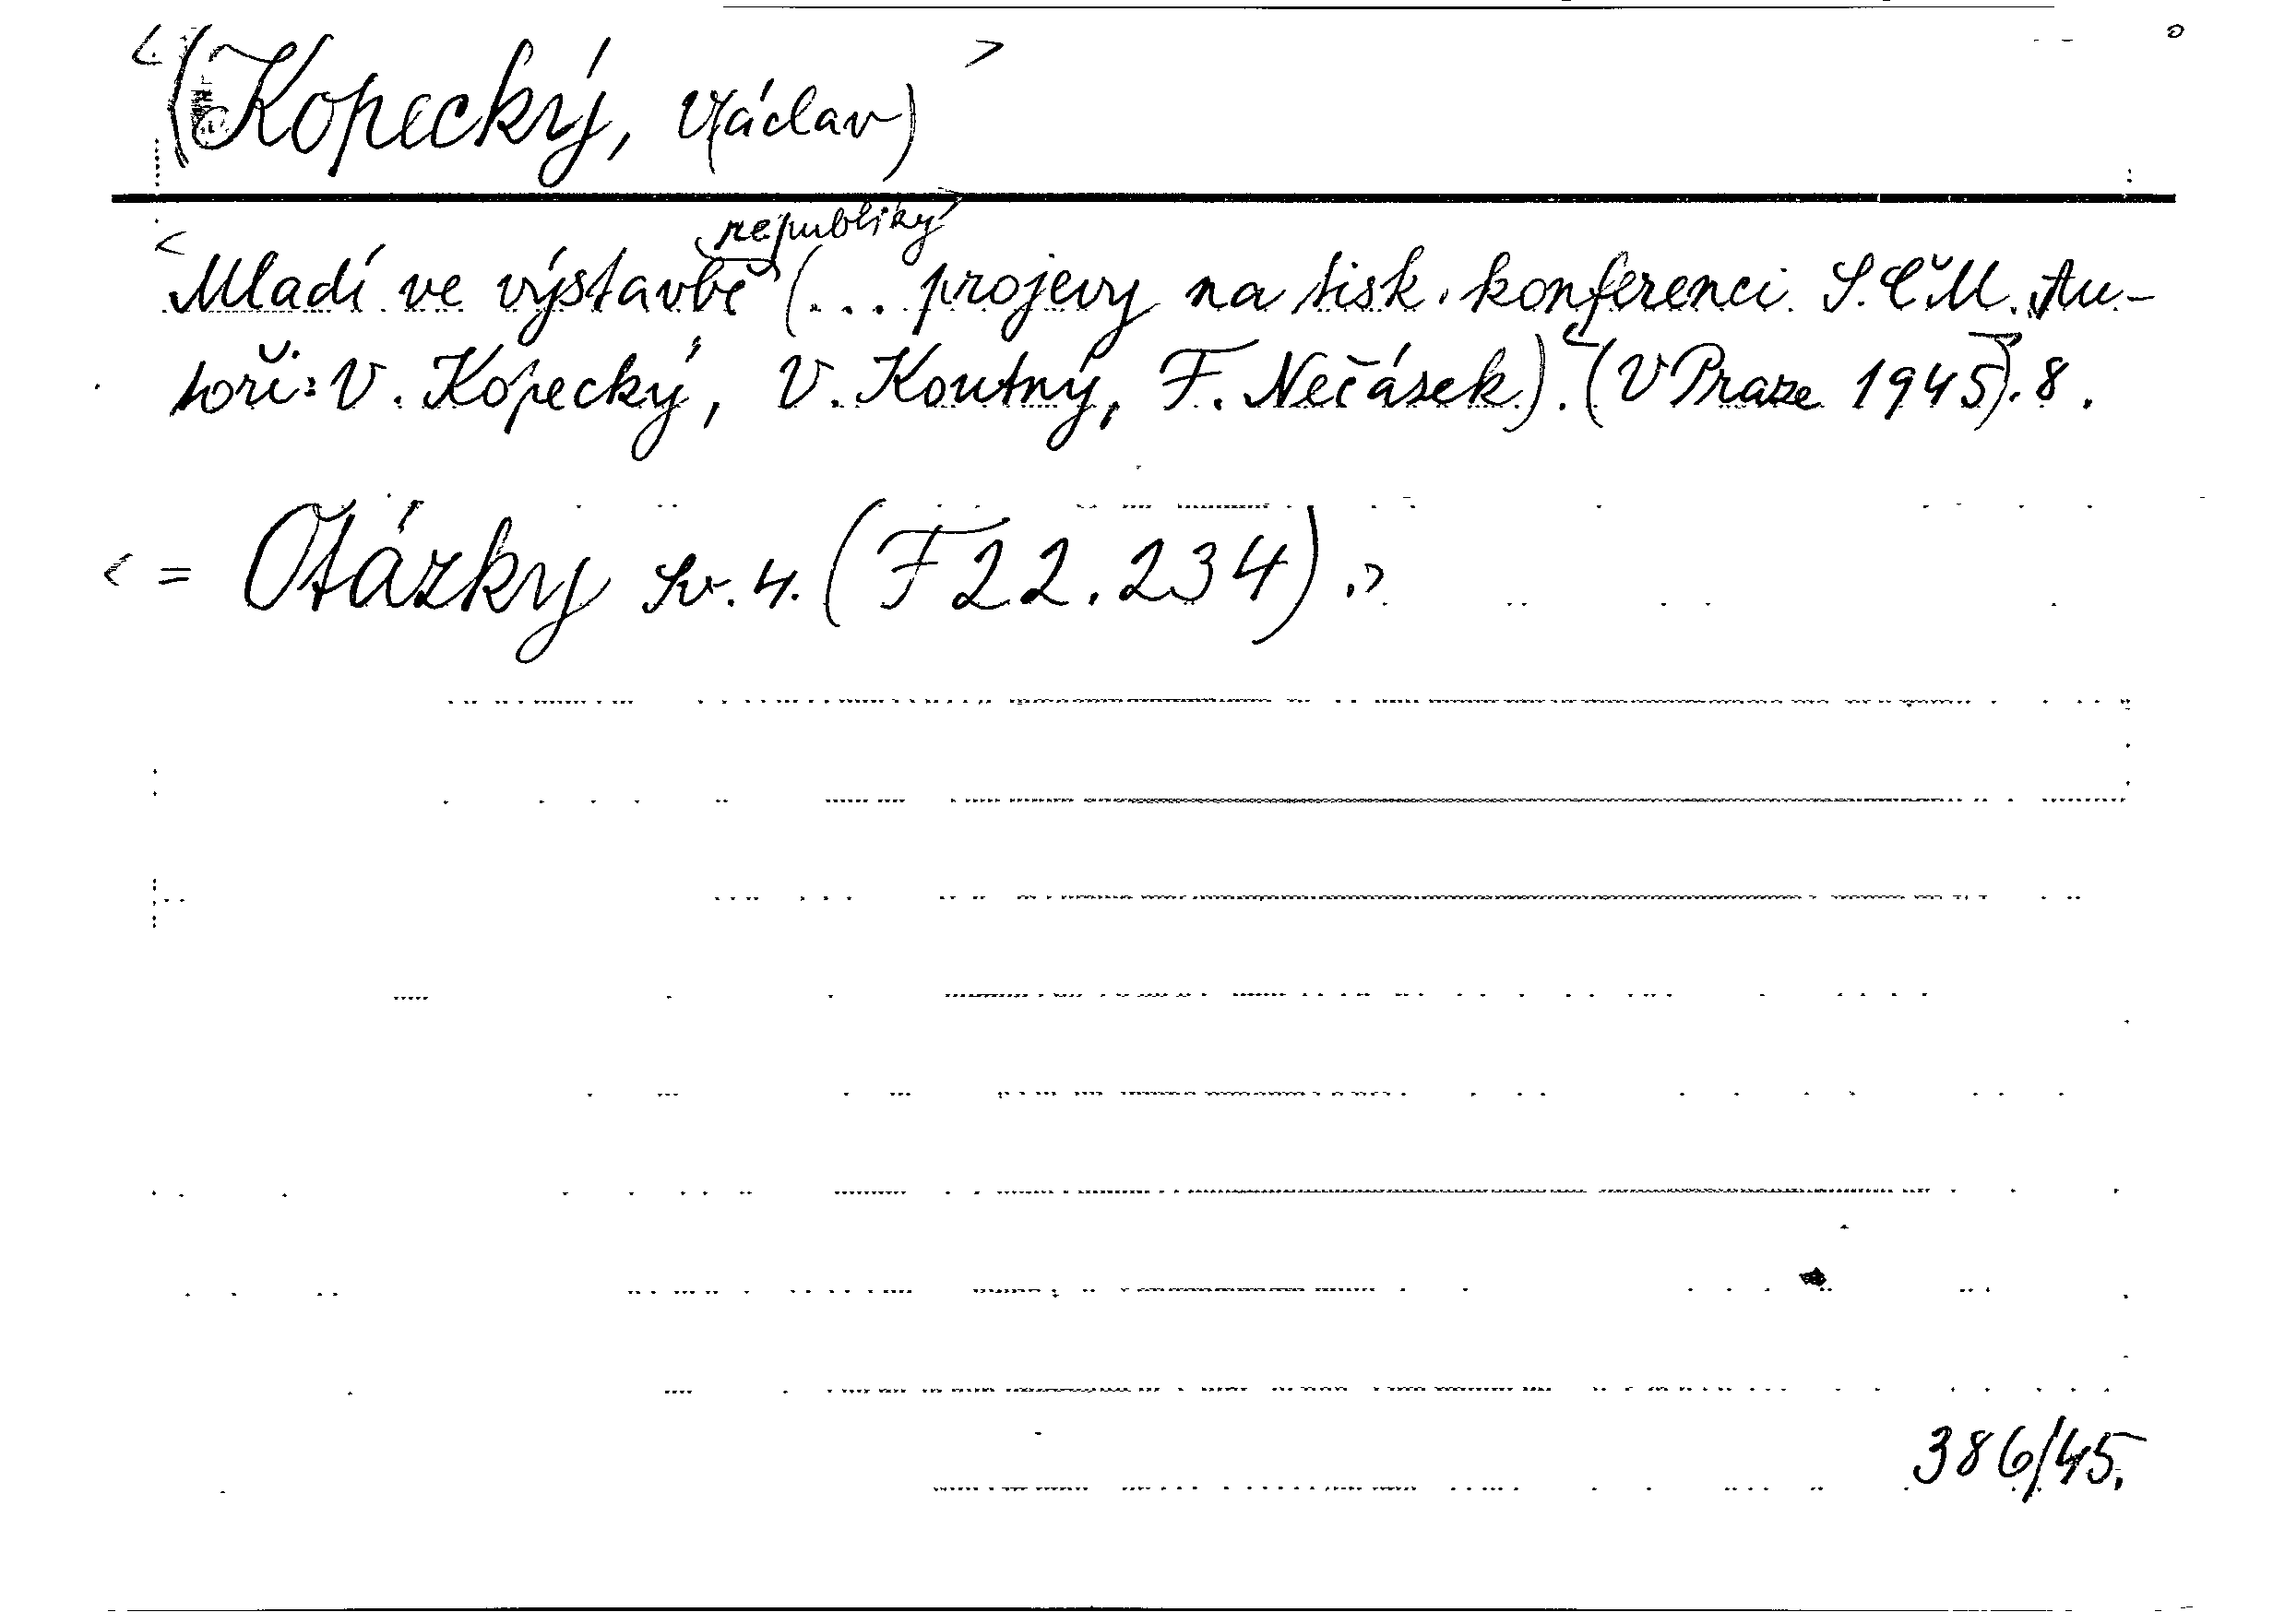 <(Kopecký, Václav)>
<Mladí ve výstavbě republiky> (... projevy na tisk. konferenci S.Č.M. Au-
toři: V. Kopecký, V. Koutný, F. Nečásek). <(V Praze 1945)>. 8.
<= Otázky sv. 4. (F 22.234).>
386/45.